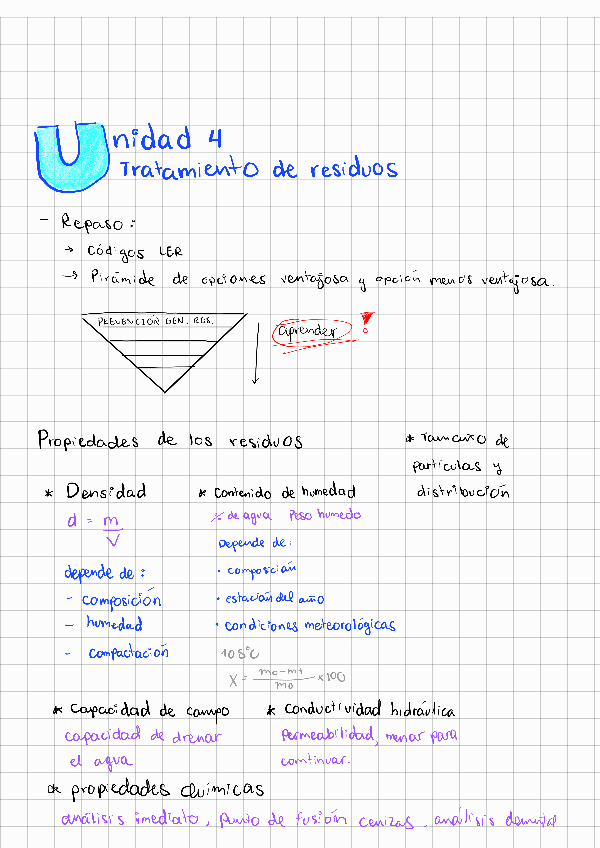 Unidad 4
Tratamiento de residuos
- Repaso:
→ Códigos LER
→ Pirámide de opciones ventajosa y opción menos ventajosa.
PREVENCIÓN GEN. RES.
aprender !
Propiedades de los residuos
* Tamaño de
partículas y
distribución
* Densidad
d = m
V
depende de:
- composición
- humedad
- compactación
* Contenido de humedad
% de agua Peso humedo
Depende de:
· composición
· estación del año
· condiciones meteorológicas
105°C
X = m0-mt / m0 x100
* Capacidad de campo
capacidad de drenar
el agua
* Conductividad hidráulica
Permeabilidad, menar para
continuar.
* propiedades químicas
análisis imediato, punto de fusión cenizas, análisis